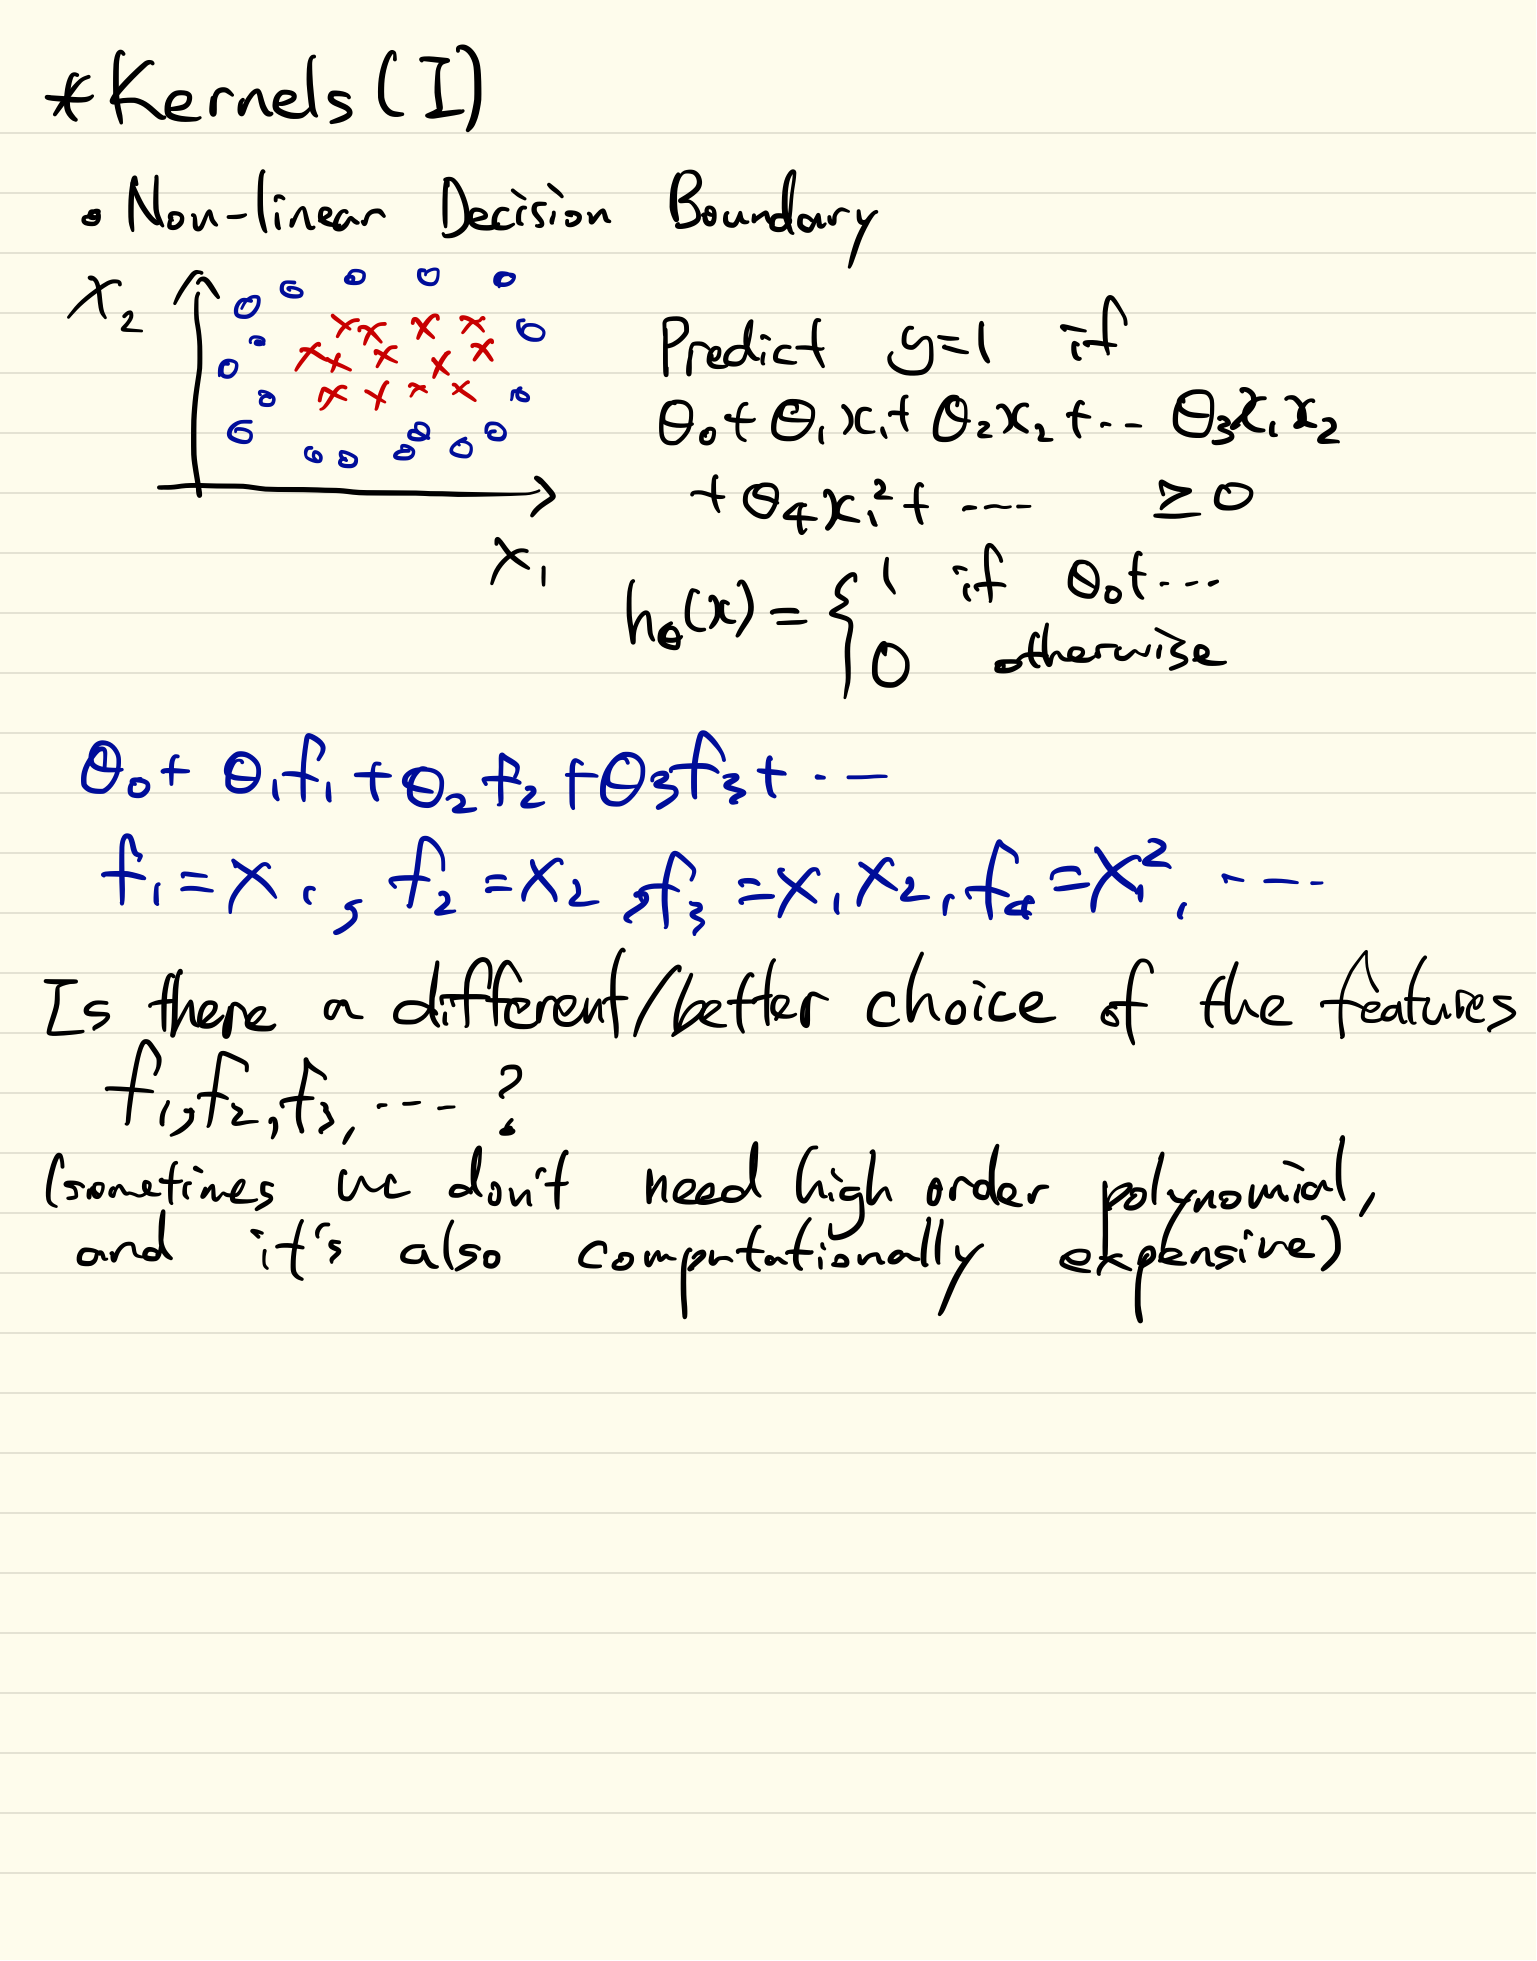 *Kernels (I)
• Non-linear Decision Boundary
x₂
Predict y=1 if
θ₀+ θ₁x₁+ θ₂x₂ +... θ₃x₁x₂
+ θ₄x₁²+ .... ≥0
x₁
hθ(x) = { 1 if θ₀+...
0 otherwise
θ₀+ θ₁f₁+θ₂f₂+θ₃f₃+ ...
f₁=x₁, f₂=x₂, f₃=x₁x₂, f₄=x₁², ....
Is there a different/better choice of the features
f₁,f₂,f₃, .... ?
(sometimes we don't need high order polynomial,
and it's also computationally expensive)